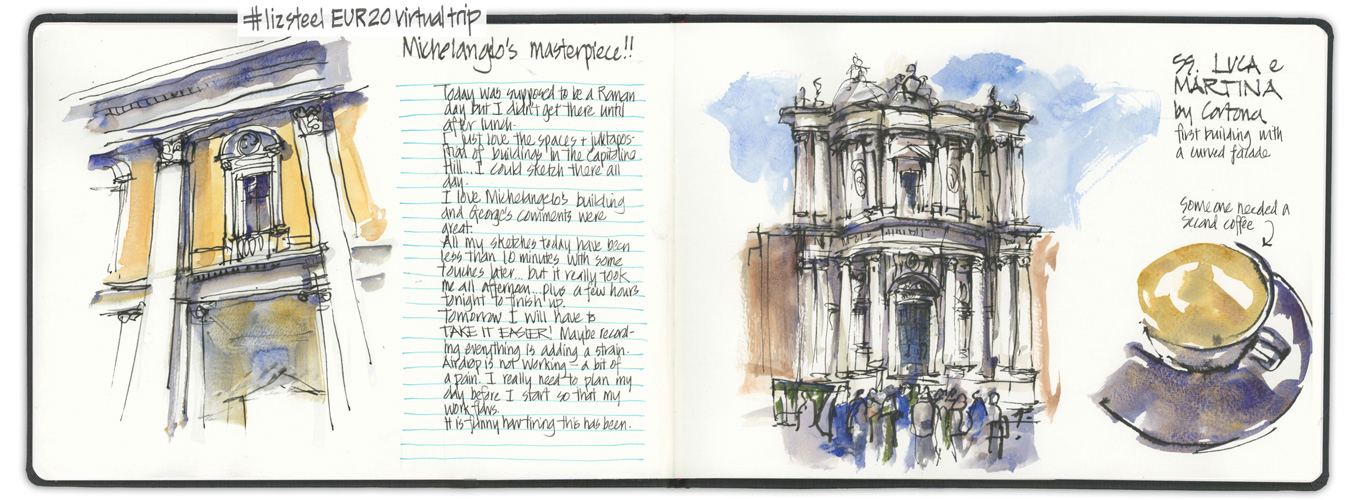 #lizsteel EUR20 virtual trip
Michelangelo's masterpiece!!
Today was supposed to be a Roman
day but I didn't get there until
after lunch.
I just love the spaces + juxtapos-
ition of buildings in the Capitoline
Hill... I could sketch there all
day.
I love Michelangelo's building
and George's comments were
great.
All my sketches today have been
less than 10 minutes with some
touches later... but it really took
me all afternoon... plus a few hours
tonight to finish up.
Tomorrow I will have to
TAKE IT EASIER! Maybe record-
ing everything is adding a strain.
Airdrop is not working - a bit of
a pain. I really need to plan my
day before I start so that my
work flows.
It is funny how tiring this has been.
SS. LUCA e
MARTINA
by Cortona
first building with
a curved facade
Someone needed a
second coffee